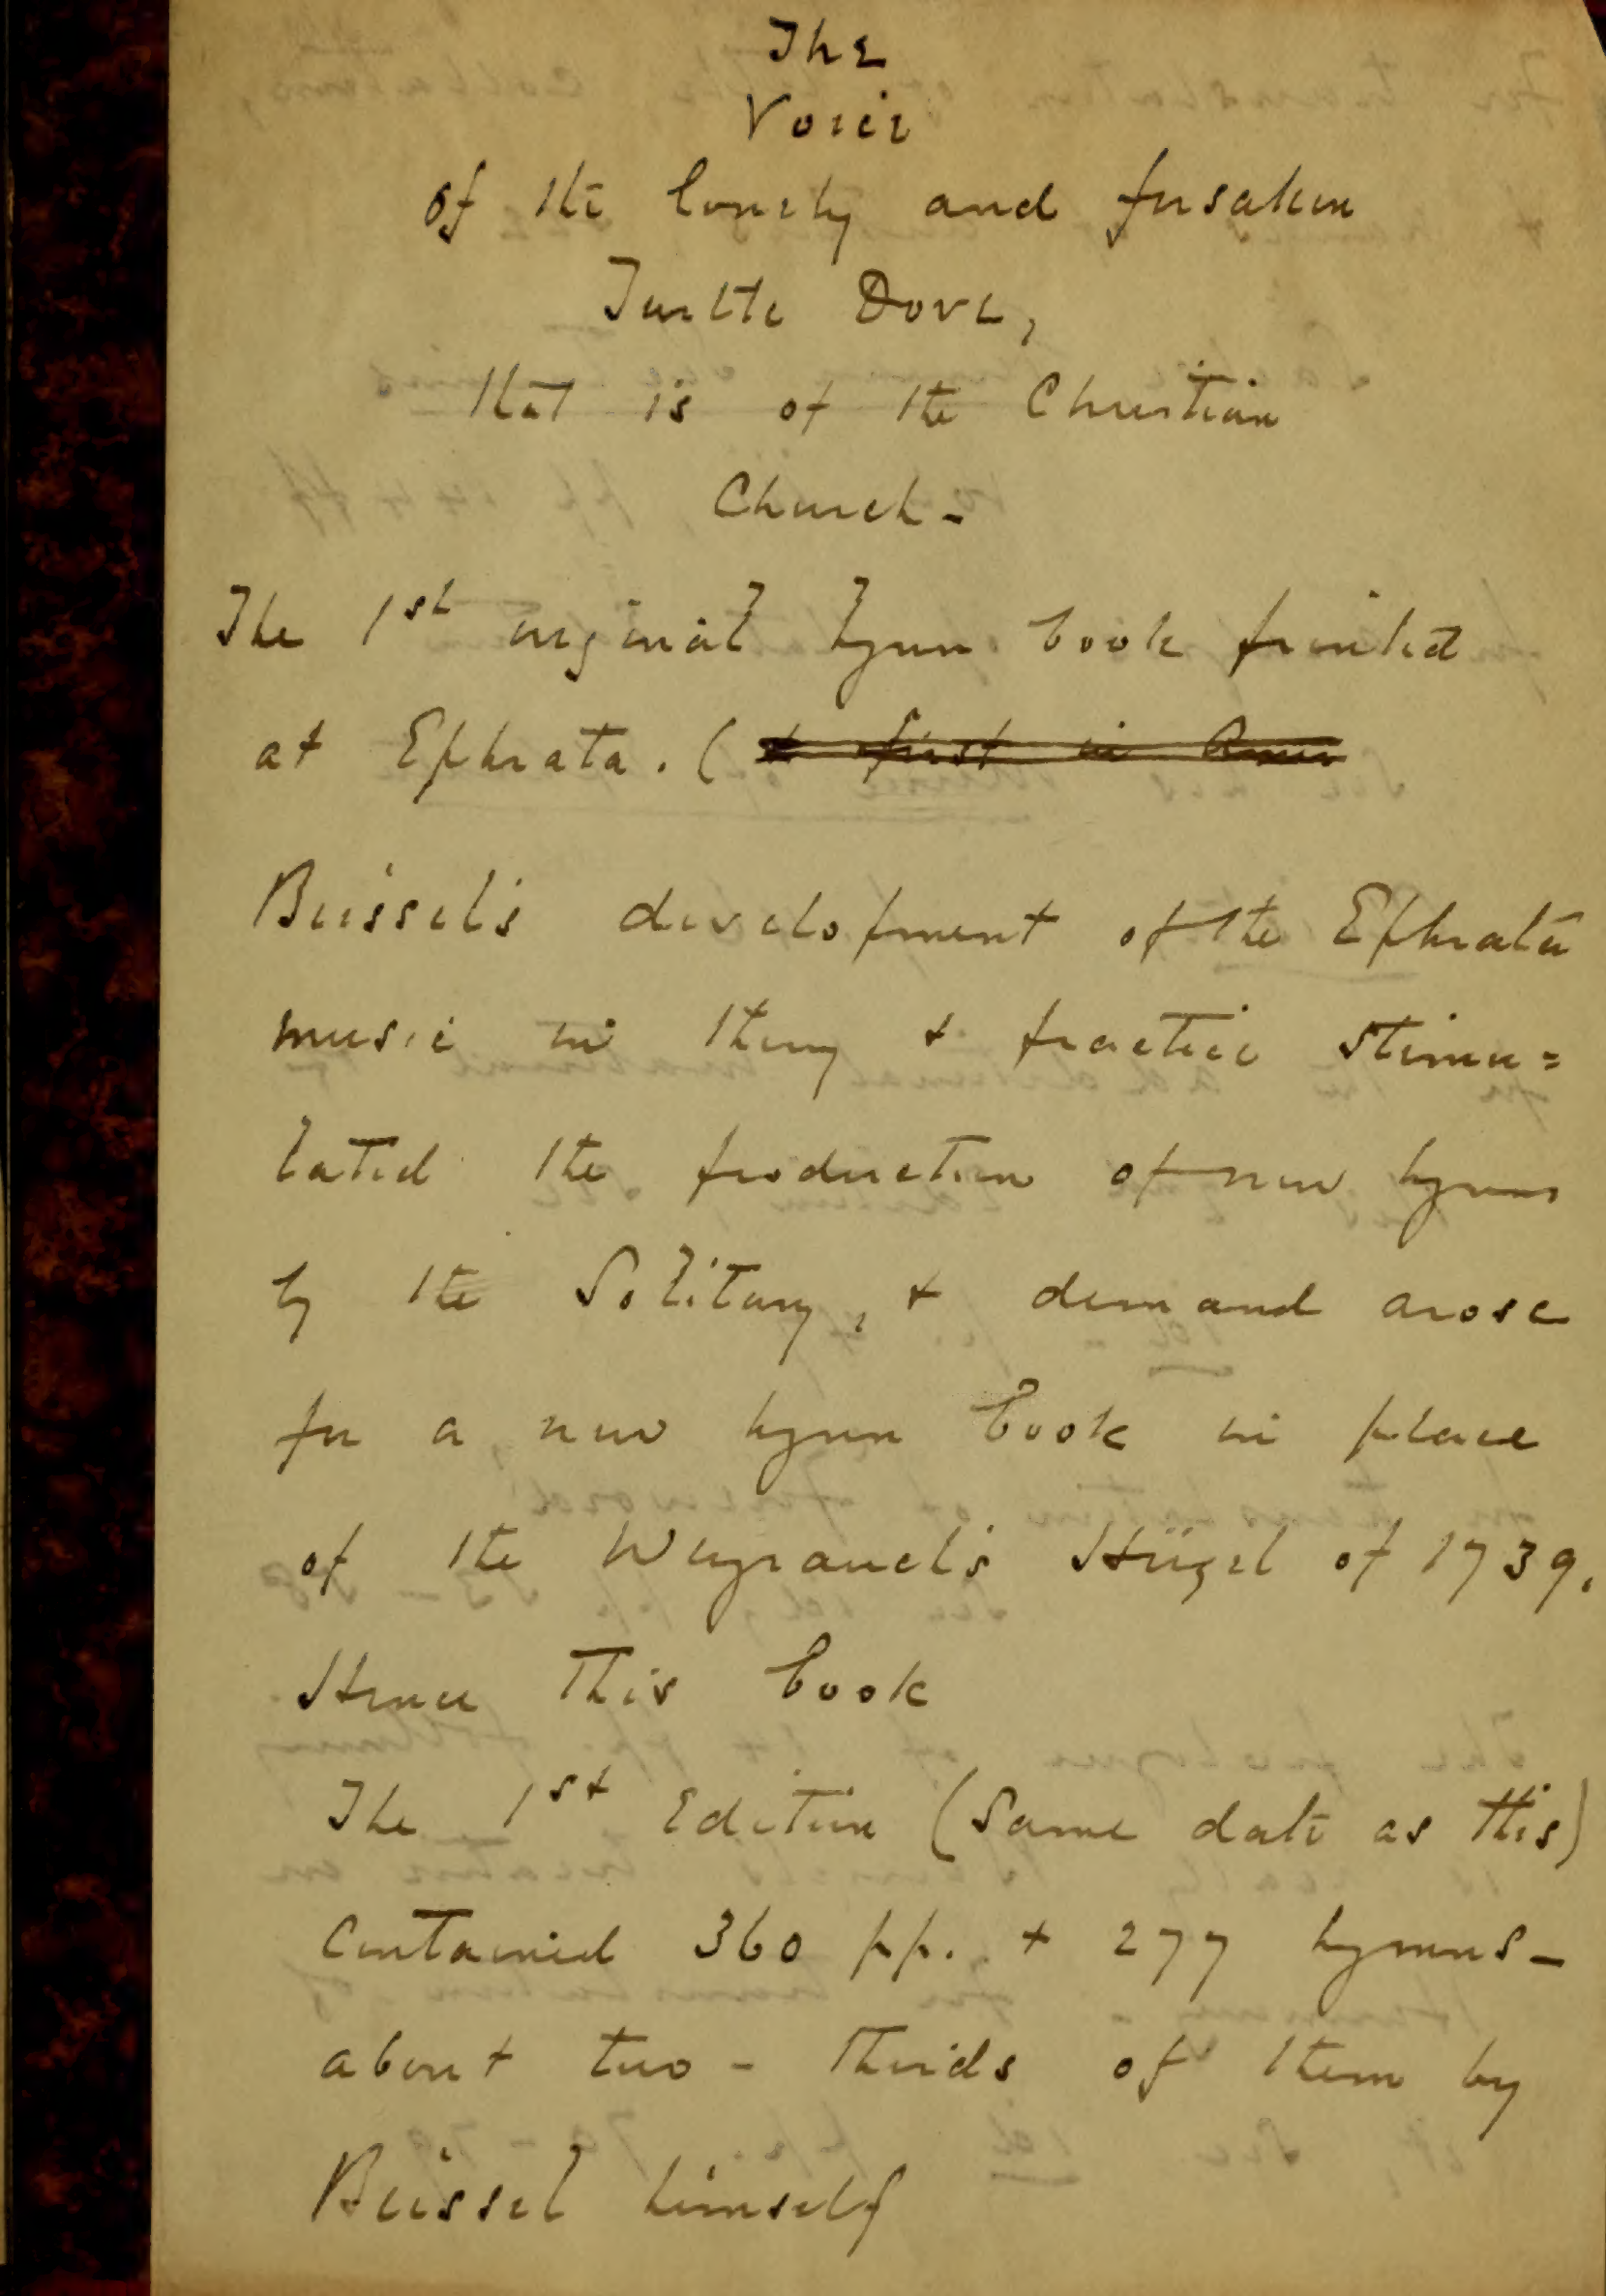 The
Voice
of the lonely and forsaken
Turtle Dove,
that is of the Christian
Church -
The 1st original hymn book printed
at Ephrata. (
Beissel's development of the Ephrata
music in theory & practice stimu=
lated the production of new hymns
by the Solitary, & demand arose
for a new hymn book in place
of the Weyrauch's Hügel of 1739.
Hence this book
The 1st Edition (Same date as this)
contained 360 pp. & 277 hymns -
about two - thirds of them by
Beissel himself